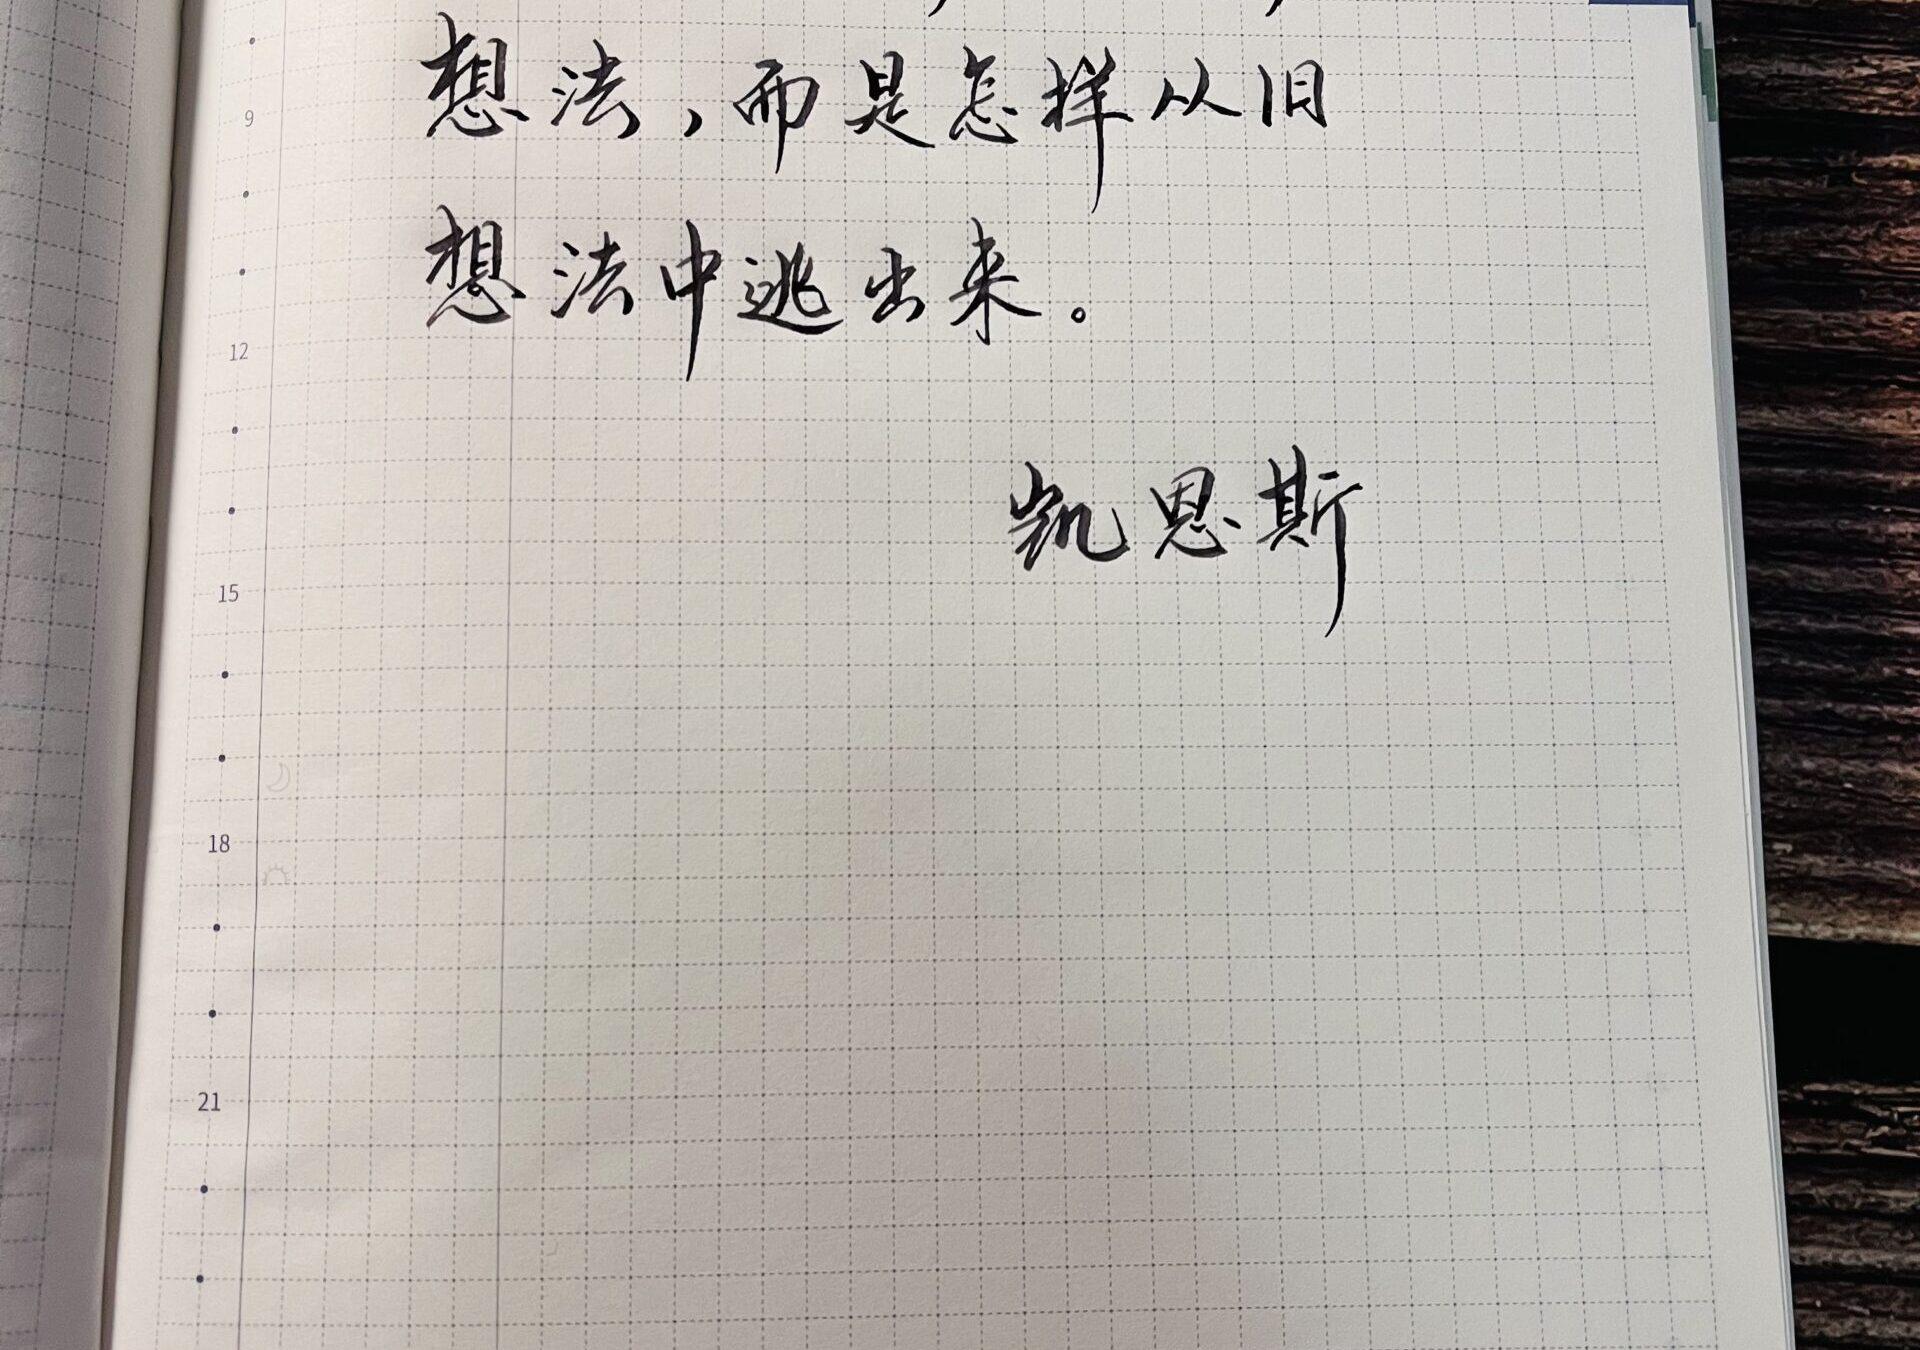 想法，而是怎样从旧
9
想法中逃出来。
12
凯恩斯
15
18
21